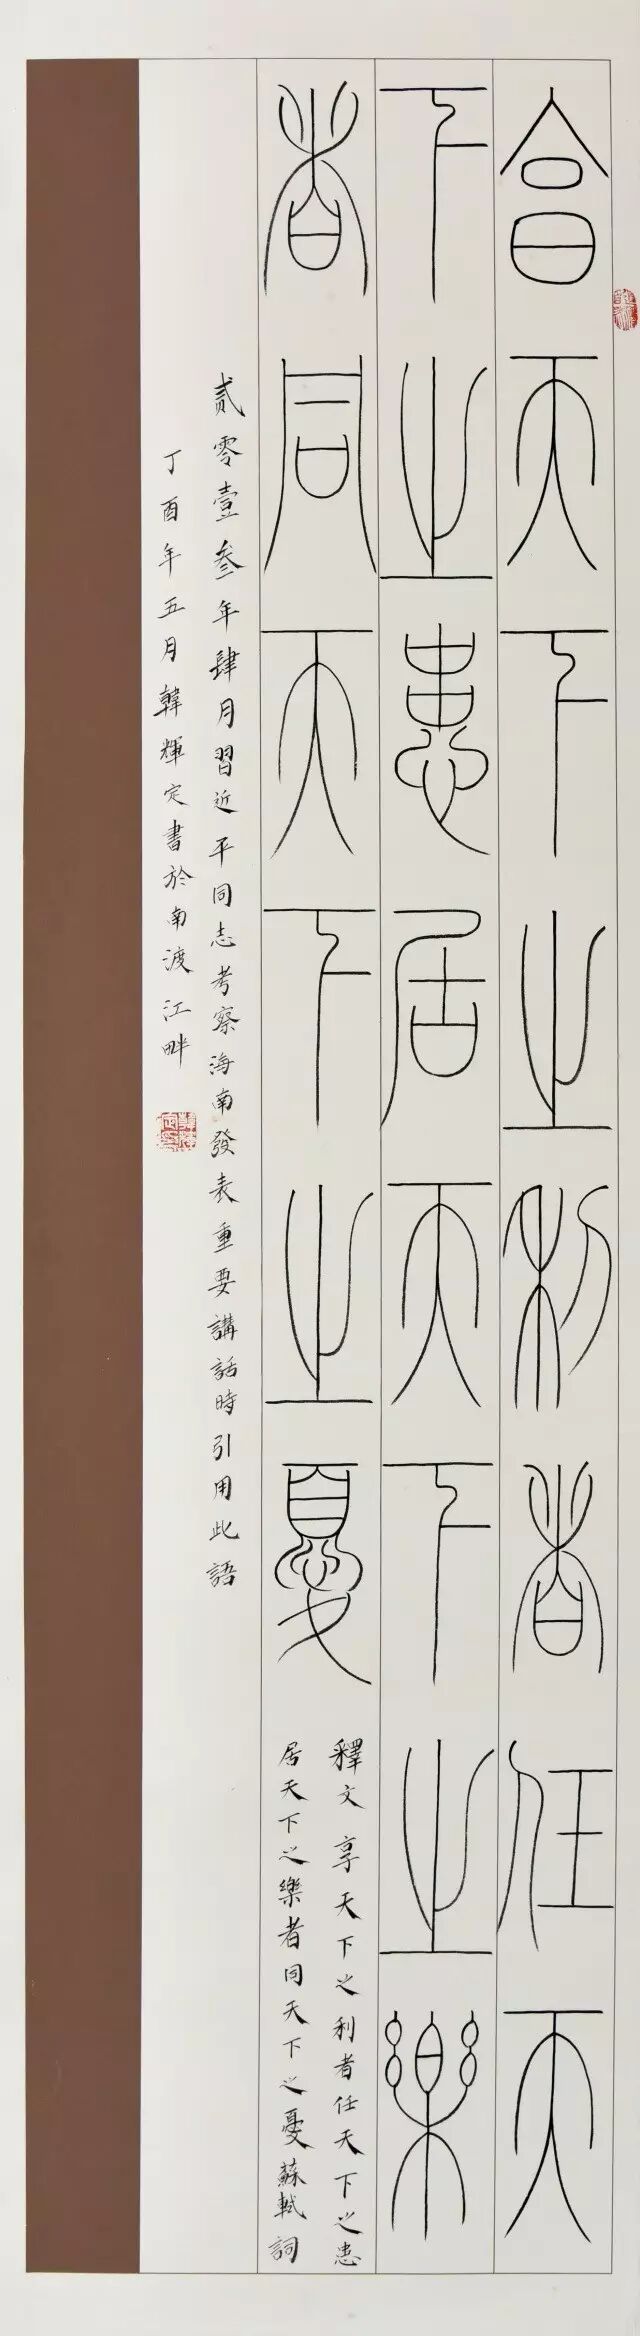 享天下之利者任天
下之患居天下之樂
者同天下之憂
釋文享天下之利者任天下之患
居天下之樂者同天下之憂蘇軾詞
贰零壹叁年肆月習近平同志考察海南發表重要講話時引用此語
丁酉年五月韓輝定書於南渡江畔